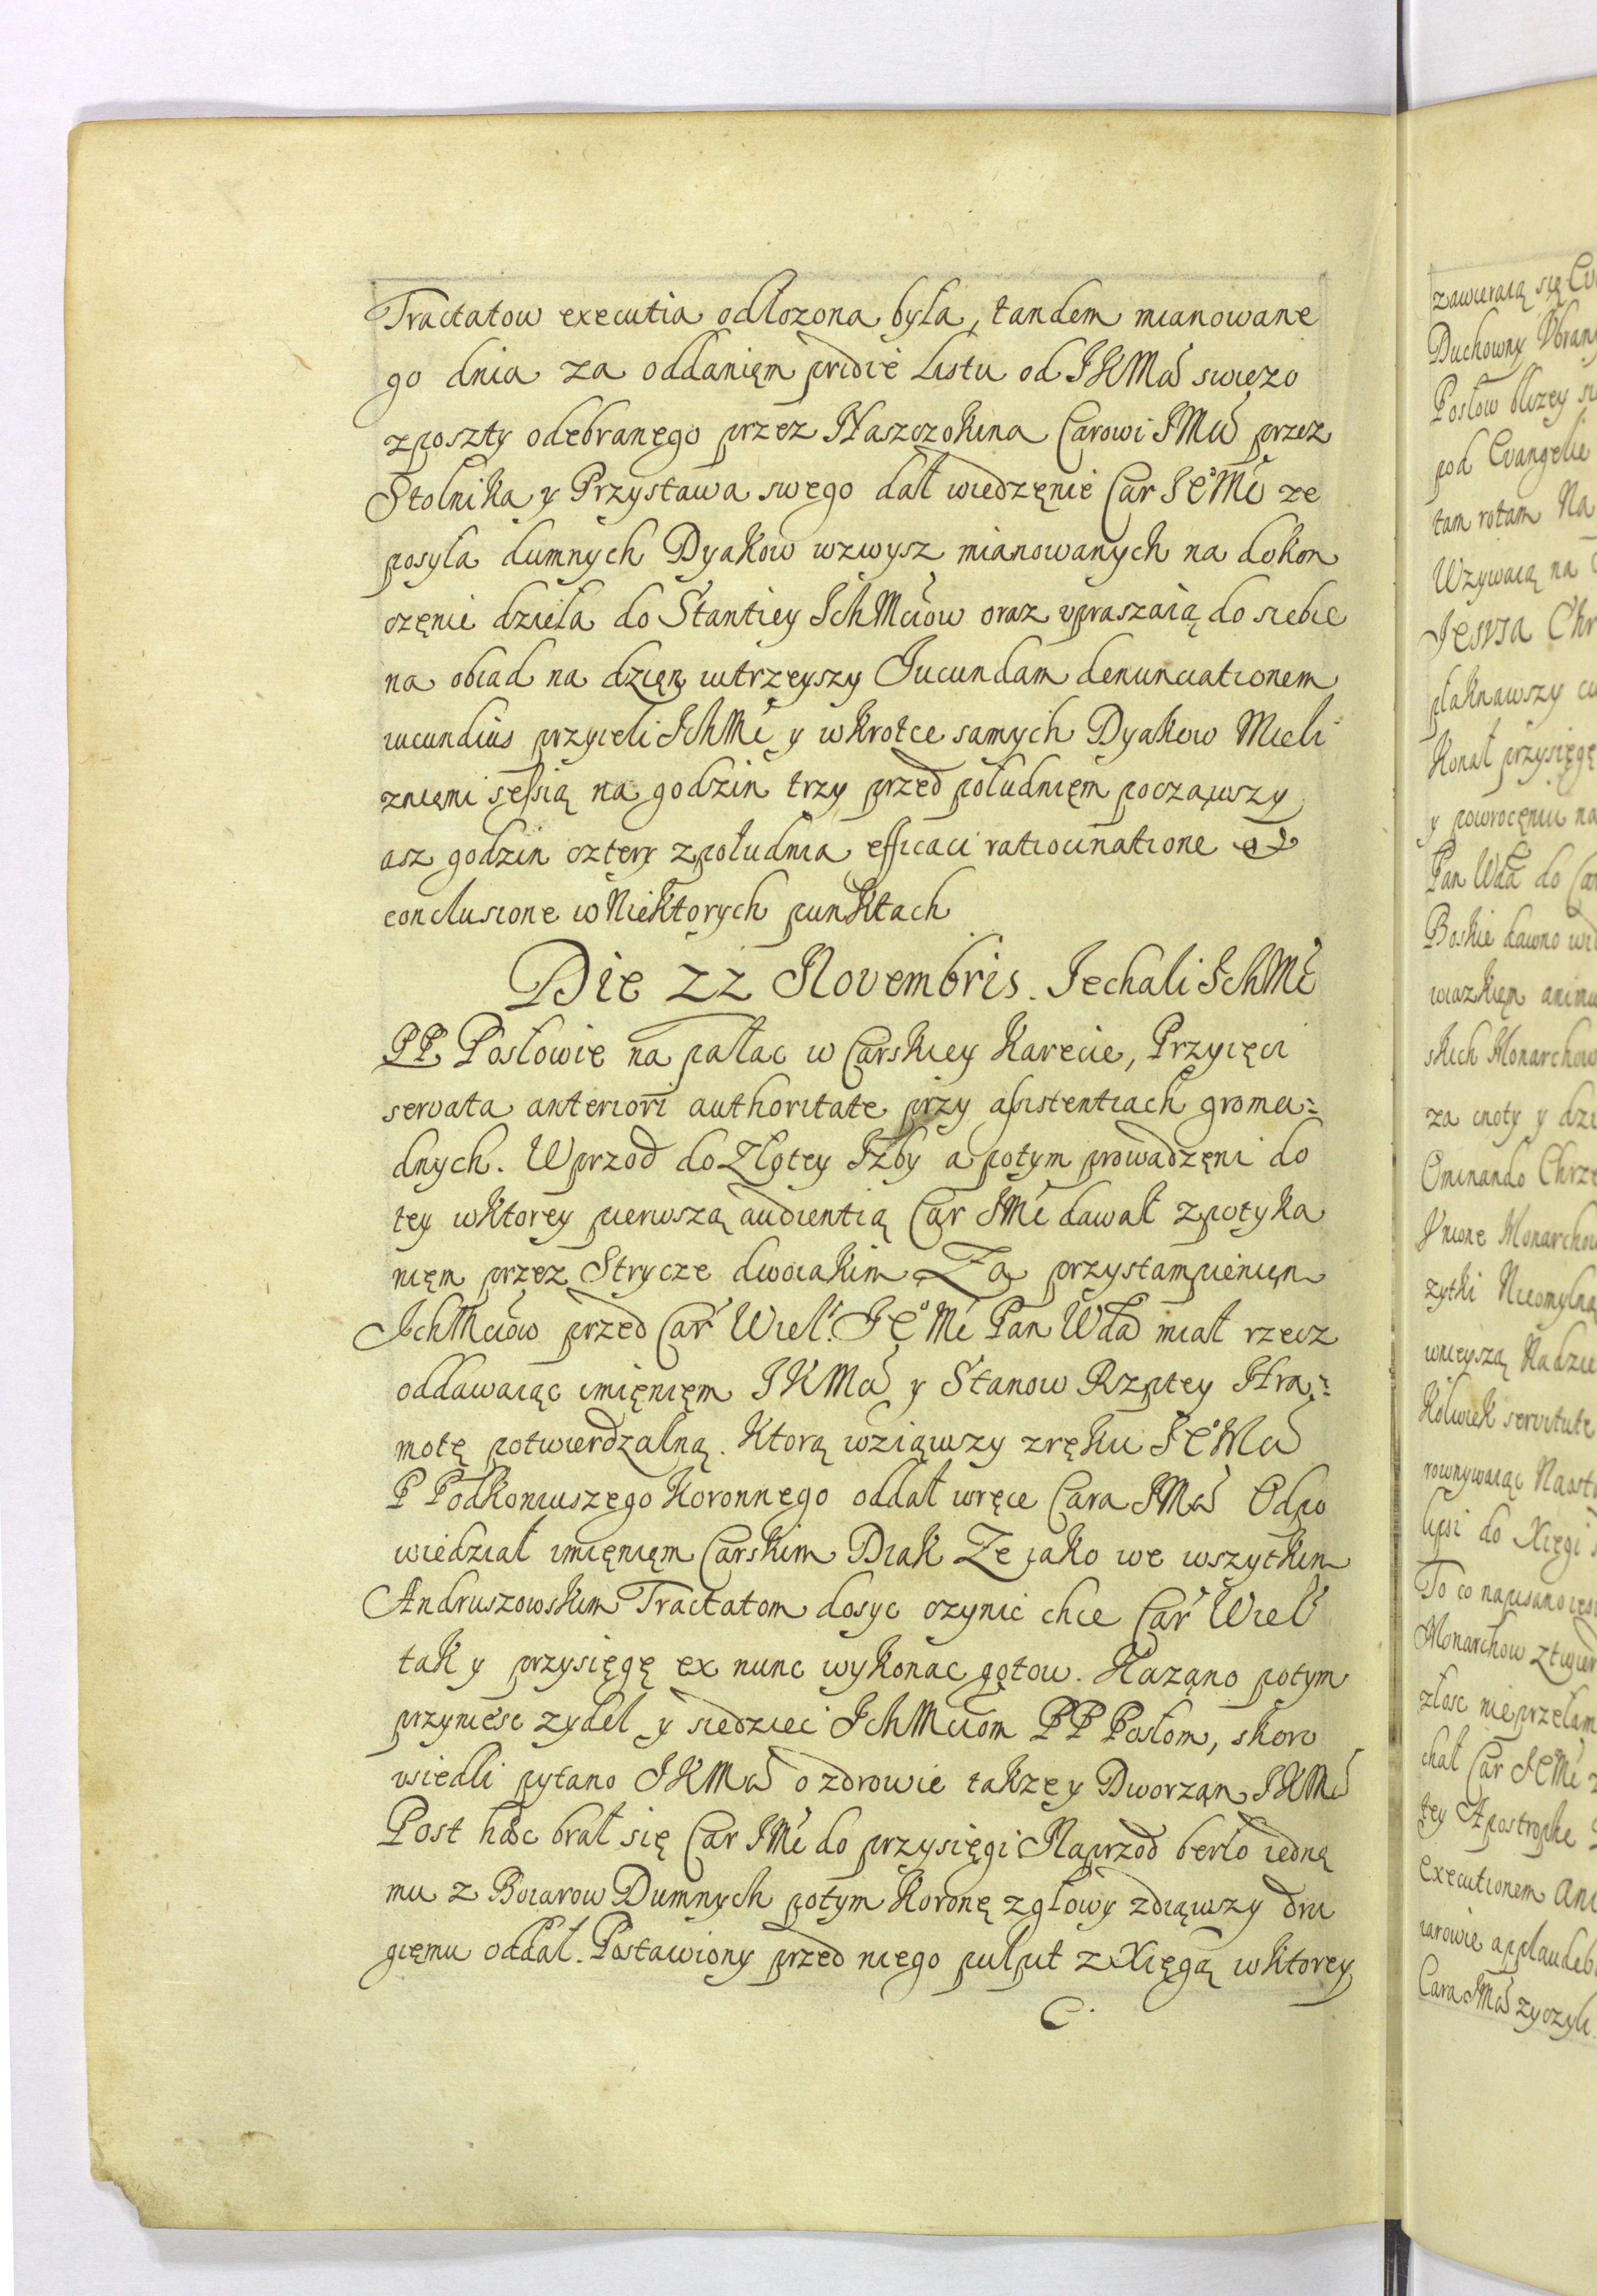 Tractatow executia odłozona była, tandem mianowane
go dnia za oddanięm pridie Listu od JKMci swięzo
z poszty odebranego przez Naszczokina Carowi JMci przez
Stolnika y Przystawa swego dał wiedzęnie Car JeoMć ze
posyła dumnych Dyakow wzwysz mianowanych na dokon
częnie dzieła do Stantiey IchMciow oraz vpraszaią do siebie
na obiad na dzięn iutrzeyszy Jucundam denunciationem
iucundius przyieli IchMć y wkrotce samych Dyakow Mieli
zniemi sessią na godzin trzy przed południęm począwszy
asz godzin cztery zpołudnia efficaci ratiocinatione et
conclusione w Niektorych punktach
Die 22 Novembris. Jechali IchMć
PP. Posłowie na pałac w Carskiey Karecie, Przyięci
servata anteriori authoritate przy assistentiach groma=
dnych. Wprzod do Złotey Izby a potym prowadzęni do
tey wktorey pierwszą audientią Car JMć dawał zpotyka
nięm przez Strycze dwoiakim Za przystampienięn
IchMciow przed Car Wiel. JeoMć Pan Wda miał rzecz
oddawaiąc imięnięm JKMci y Stanow Rzptey Hra=
motę potwierdzalną. Ktorą wziąwszy zręku JeoMci
P Podkoniuszego Koronnego oddał wręce Cara JMci Odpo
wiedział imięnięm Carskim Diak Ze iako we wszytkim
Andruszowskim Tractatom dosyc czynic chce Car Wiel
tak y przysięgę ex nunc wykonac gotow. Kazano potym
przyniesc zydel y siedziec IchMciom PP Posłom, skoro
usiedli pytano JKMci o zdrowie takze y Dworzan JKMci
Post hæc brał się Car JMć do przysięgi Naprzod berło iedne
mu z Boiarow Dumnych potym Koronę z głowy zdiąwszy dru
giemu oddał. Postawiony przed niego pulpit z Xięgą wktorey
C.
zawieraią się
Duchowny Vbrany
Posłow blizey
pod Evangelie
tam rotam Na
Wzywaią na
Jesvsa Chr
plaknawszy
Konał przysięgę
y powrocęniu na
Pan Wda do Car
Boskie dawno
wiazkięm
skich Monarchow
za cnoty y
Ominando Chrze
Vnione Monarchow
zytki Nieomylną
wnieyszą Nadzie
Kolwiek servitute
rownywaiąc
do Xięgi
To co napisano iest
Monarchow
złosc nie przełam
chał Car JeoMć
tey Apostrophe
executionem
iarowie applaudeb
Cara JMci zyczyli